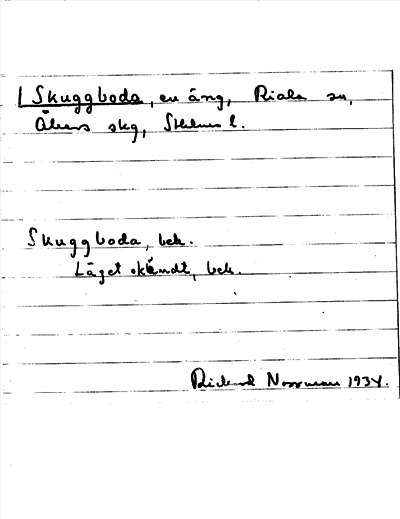 Skuggboda, en äng, Riala sn,
Åkers skg, Sthlms l.
Skuggboda, bek.
Läget okändt, bek.
Rickard Norrman 1934.